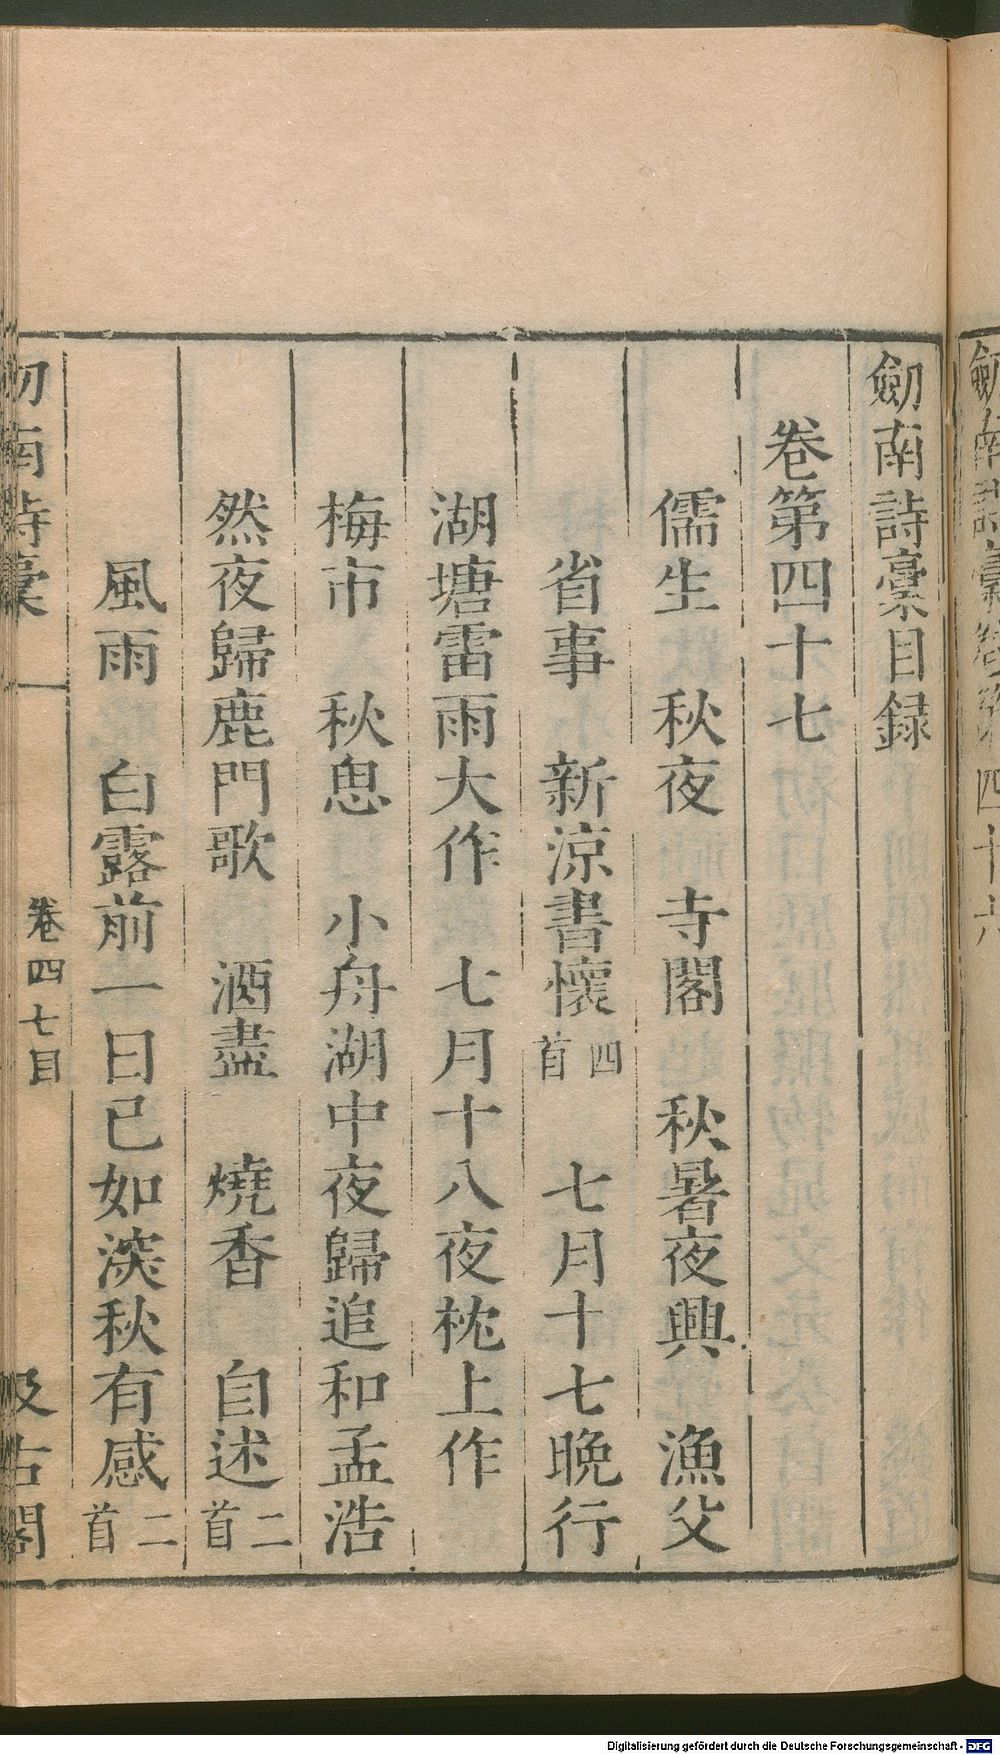 劒南詩稾目録
卷第四十七
儒生 秋夜 寺閣 秋暑夜興 漁父
省事 新涼書懷四首 七月十七晩行
湖塘雷雨大作 七月十八夜枕上作
梅市 秋思 小舟湖中夜歸追和孟浩
然夜歸鹿門歌 酒盡 燒香 自述二首
風雨 白露前一日已如深秋有感二首
南詩稾 卷四七目 汲古閣
Digitalisierung gefördert durch die Deutsche Forschungsgemeinschaft - DFG